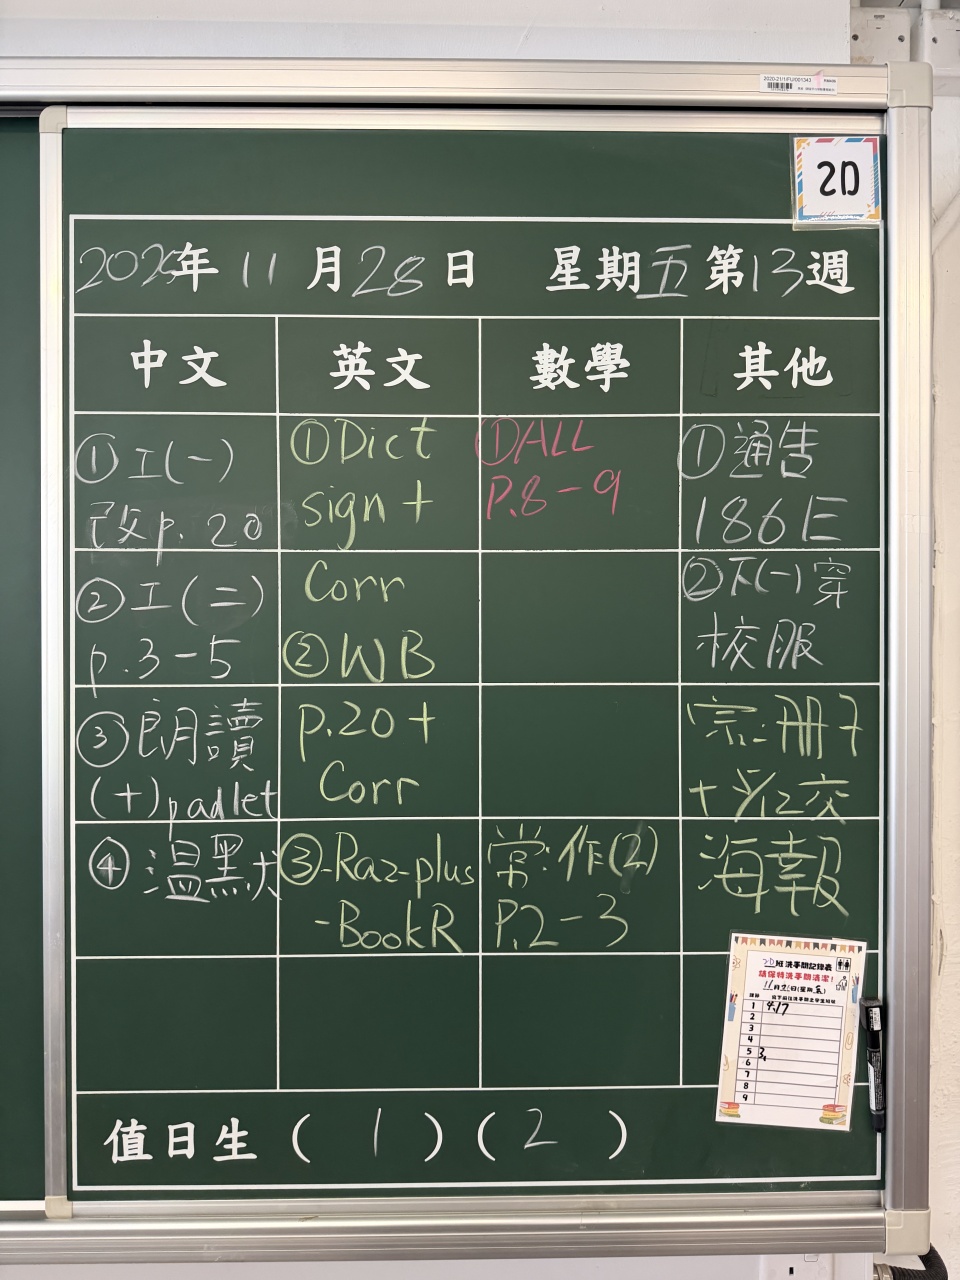 2020-21/1FU/001343
2D
2025年 11 月 28 日 星期 五 第 13 週
中文 英文 數學 其他
①工(一)
改p.20
②工(二)
p.3-5
③朗讀
(十)padlet
④溫黑犬
①Dict
sign +
Corr
②WB
p.20+
Corr
③-Raz-plus
-BookR
①ALL
P.8-9
常:作(2)
P.2-3
①通告
186E
②下(一)穿
校服
宗:冊子
+ 5/12交
海報
2D班洗手間記錄表
請保持洗手間清潔!
11月21日(星期五)
課節
1 4,17
2
3
4
5 3,
6
7
8
9
值日生 ( 1 ) ( 2 )